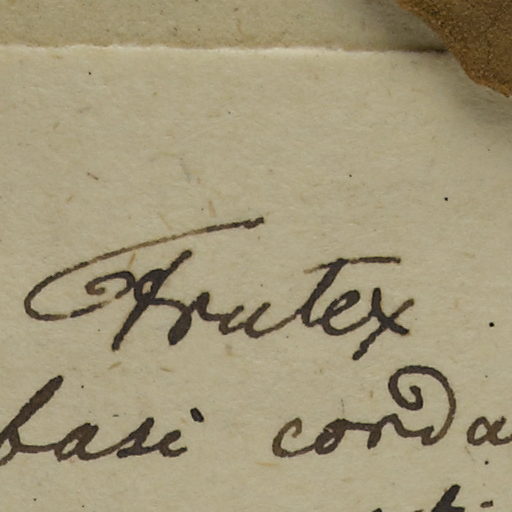 Frutex
basi corda